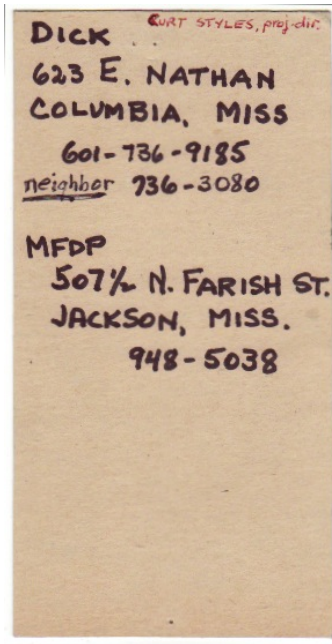 CURT STYLES, proj-dir.
DICK
623 E. NATHAN
COLUMBIA, MISS
601-736-9185
neighbor 736-3080
MFDP
507½ N. FARISH ST.
JACKSON, MISS.
948-5038